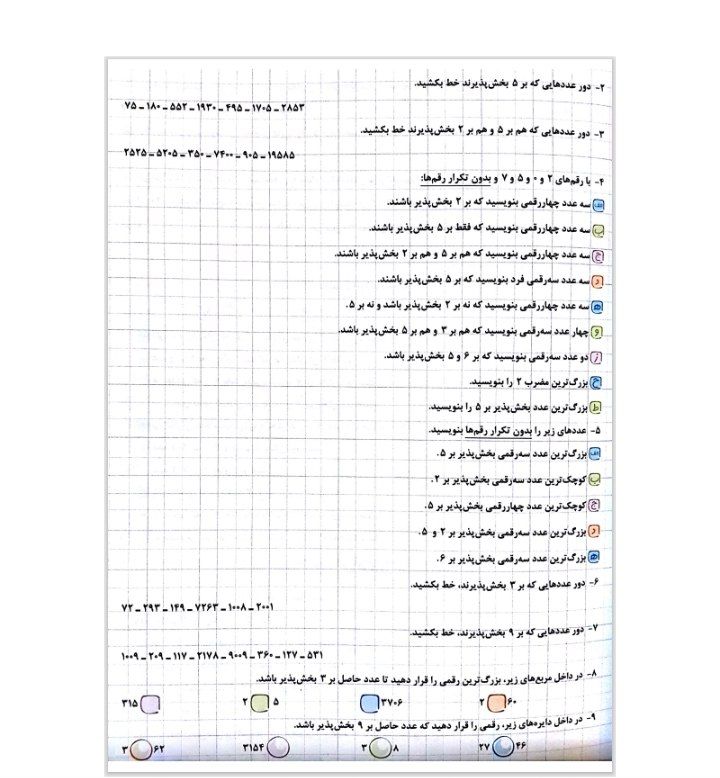 ۲- دور عددهایی که بر ۵ بخش‌پذیرند خط بکشید.
۷۵ ـ ۱۸۰ ـ ۵۵۲ ـ ۱۹۳۰ ـ ۴۹۵ ـ ۱۷۰۵ ـ ۲۸۵۳
۳- دور عددهایی که هم بر ۵ و هم بر ۲ بخش‌پذیرند خط بکشید.
۲۵۲۵ ـ ۵۲۰۵ ـ ۳۵۰ ـ ۷۴۰۰ ـ ۹۰۵ ـ ۱۹۵۸۵
۴- با رقم‌های ۲ و ۰ و ۵ و ۷ و بدون تکرار رقم‌ها:
الف سه عدد چهاررقمی بنویسید که بر ۲ بخش‌پذیر باشند.
ب سه عدد چهاررقمی بنویسید که فقط بر ۵ بخش‌پذیر باشند.
ج سه عدد چهاررقمی بنویسید که هم بر ۵ و هم بر ۲ بخش‌پذیر باشند.
د سه عدد سه‌رقمی فرد بنویسید که بر ۵ بخش‌پذیر باشند.
هـ سه عدد چهاررقمی بنویسید که نه بر ۲ بخش‌پذیر باشد و نه بر ۵.
و چهار عدد سه‌رقمی بنویسید که هم بر ۳ و هم بر ۵ بخش‌پذیر باشد.
ز دو عدد سه‌رقمی بنویسید که بر ۶ و ۵ بخش‌پذیر باشد.
ح بزرگ‌ترین مضرب ۲ را بنویسید.
ط بزرگ‌ترین عدد بخش‌پذیر بر ۵ را بنویسید.
۵- عددهای زیر را بدون تکرار رقم‌ها بنویسید.
الف بزرگ‌ترین عدد سه‌رقمی بخش‌پذیر بر ۵.
ب کوچک‌ترین عدد سه‌رقمی بخش‌پذیر بر ۲.
ج کوچک‌ترین عدد چهاررقمی بخش‌پذیر بر ۵.
د بزرگ‌ترین عدد سه‌رقمی بخش‌پذیر بر ۲ و ۵.
هـ بزرگ‌ترین عدد سه‌رقمی بخش‌پذیر بر ۶.
۶- دور عددهایی که بر ۳ بخش‌پذیرند، خط بکشید.
۷۲ ـ ۲۹۳ ـ ۱۴۹ ـ ۷۲۶۳ ـ ۱۰۰۸ ـ ۲۰۰۱
۷- دور عددهایی که بر ۹ بخش‌پذیرند، خط بکشید.
۱۰۰۹ ـ ۲۰۹ ـ ۱۱۷ ـ ۲۱۷۸ ـ ۹۰۰۹ ـ ۳۶۰ ـ ۱۲۷ ـ ۵۳۱
۸- در داخل مربع‌های زیر، بزرگ‌ترین رقمی را قرار دهید تا عدد حاصل بر ۳ بخش‌پذیر باشد.
۲ ۶۰ ۳۷۰۶ ۲ ۵ ۳۱۵
۹- در داخل دایره‌های زیر، رقمی را قرار دهید که عدد حاصل بر ۹ بخش‌پذیر باشد.
۲۷ ۴۶ ۳ ۸ ۳۱۵۴ ۳ ۶۲